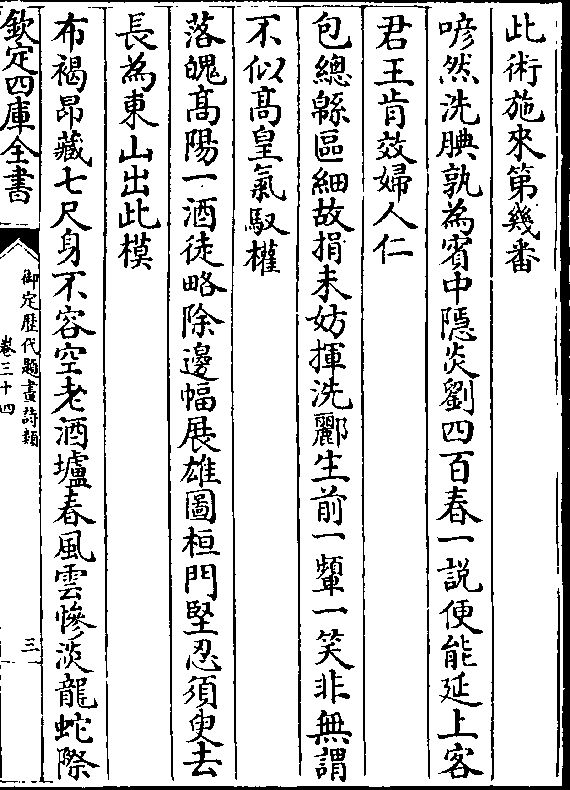 此術施來第幾番
喭然洗腆孰為賓中隱炎劉四百春一説便能延上客
君王肯效婦人仁
包總緜區細故捐未妨揮洗酈生前一顰一笑非無謂
不似髙皇氣馭權
落魄髙陽一酒徒略除邊幅展雄圖桓門堅忍須臾去
長為東山出此模
布褐昂藏七尺身不容空老酒壚春風雲慘淡龍蛇際
欽定四庫全書
御定歴代題畫詩類
卷三十四
三